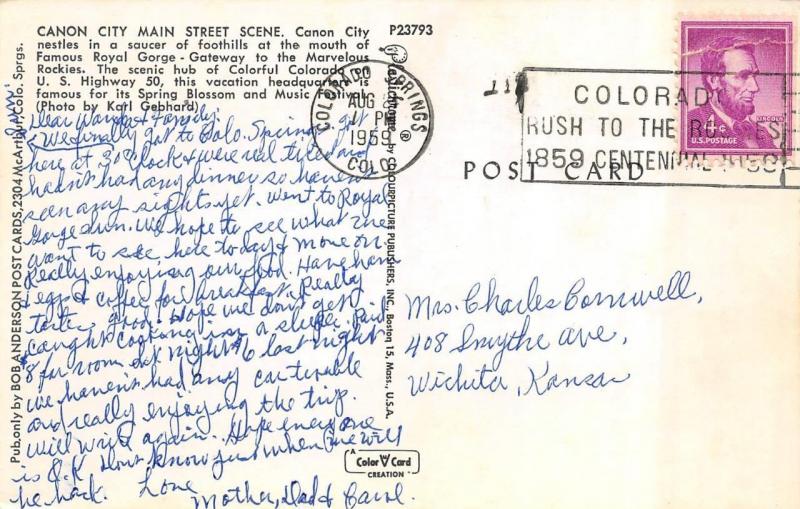 CANON CITY MAIN STREET SCENE. Canon City
nestles in a saucer of foothills at the mouth of
Famous Royal Gorge - Gateway to the Marvelous
Rockies. The scenic hub of Colorful Colorado on
U. S. Highway 50, this vacation headquarters is
famous for its Spring Blossom and Music Festival.
(Photo by Karl Gebhard)
P23793
Dear Wanda & Family:
We finally got to Colo. Springs got
here at 3 o'clock & were real tired and
hadn't had any dinner so haven't
seen any sights yet. Went to Royal
Gorge Sun. We hope to see what we
want to see here today & move on
Really enjoying our food. Have ham
eggs & coffee for breakfast. Really
tastes good. Hope we don't get
caught cooking in a sleeper. Paid
$8 for room nite $6 last night
We haven't had any car trouble
and really enjoying the trip.
Will write again. Hope everyone
is O.K. Don't know just when we will
be back. Love
Mother, Dad & Carol.
Pub. only by BOB ANDERSON POST CARDS, 2304 McArthur, Colo. Sprgs.
Plastichrome ® by COLOURPICTURE PUBLISHERS, INC., Boston 15, Mass., U.S.A.
COLORADO SPRINGS
AUG
PM
1959
COLO
COLORADO
RUSH TO THE ROCKIES
1859 CENTENNIAL 1959
LINCOLN
4c
U.S. POSTAGE
POST CARD
Mrs. Charles Cornwell,
408 Smythe Ave,
Wichita, Kansas
A
Color Card
CREATION